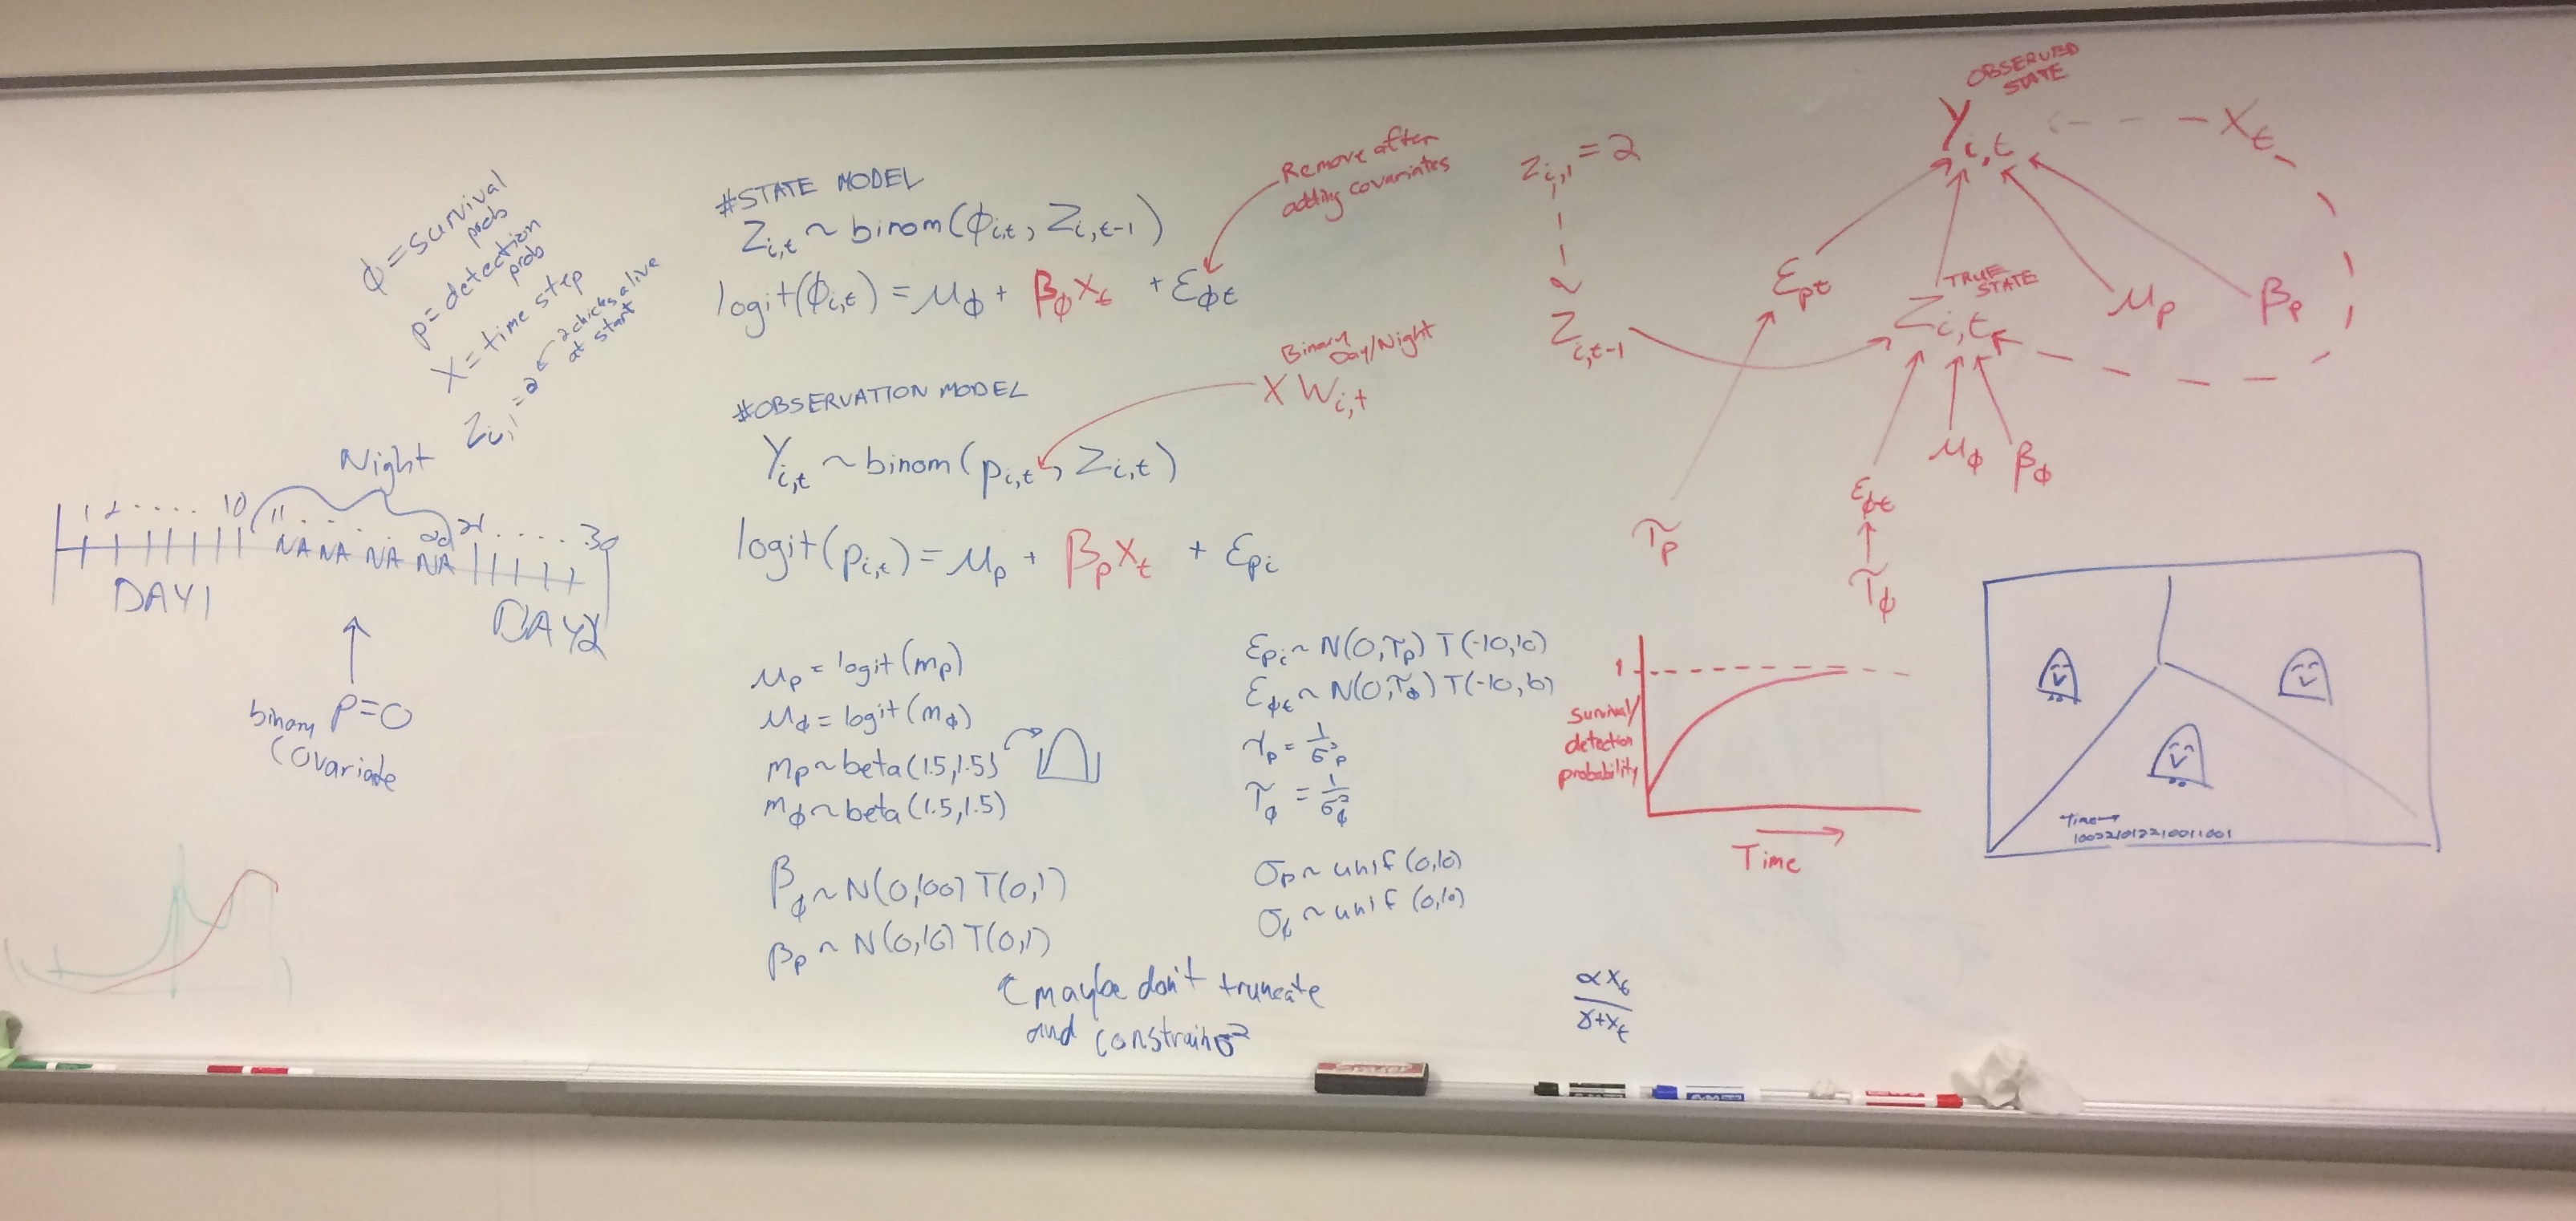 ϕ = survival
prob
p = detection
prob
X = time step
Z_{i,1} = 2 ← 2 chicks alive
at start
Night
1 2 . . . . 10 11 . . . . 20 21 . . . . . 30
NA NA NA NA
DAY 1
DAY 2
↑
binary P=0
Covariate
#STATE MODEL
Z_{i,t} ~ binom(ϕ_{i,t}, Z_{i,t-1})
logit(ϕ_{i,t}) = μ_ϕ + β_ϕ X_t + ε_{ϕt}
Remove after
adding covariates
#OBSERVATION MODEL
Binary
Day/Night
X W_{i,t}
Y_{i,t} ~ binom(p_{i,t}, Z_{i,t})
logit(p_{i,t}) = μ_p + β_p X_t + ε_{pi}
μ_p = logit(m_p)
μ_ϕ = logit(m_ϕ)
m_p ~ beta(1.5,1.5)
m_ϕ ~ beta(1.5,1.5)
β_ϕ ~ N(0,100) T(0,1)
β_p ~ N(0,10) T(0,1)
↑ maybe don't truncate
and constrain σ²
ε_{pi} ~ N(0,τ_p) T(-10,10)
ε_{ϕt} ~ N(0,τ_ϕ) T(-10,10)
τ_p = 1/σ²_p
τ_ϕ = 1/σ²_ϕ
σ_p ~ unif(0,10)
σ_ϕ ~ unif(0,10)
OBSERVED
STATE
Y_{i,t}
X_t
Z_{i,1} = 2
Z_{i,t-1}
ε_{pt}
TRUE
STATE
Z_{i,t}
μ_p
β_p
μ_ϕ
β_ϕ
ε_{ϕt}
τ_p
τ_ϕ
1
Survival/
detection
probability
Time
Time→
αX_t
γ+X_t
Eraser